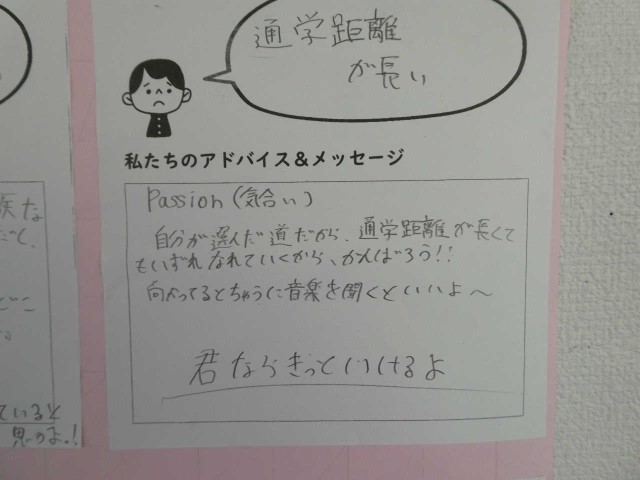 通学距離
が長い
私たちのアドバイス＆メッセージ
Passion(気合い)
自分が選んだ道だから、通学距離が長くて
もいずれなれていくから、がんばろう!!
向かってるとちゅうに音楽を聞くといいよ〜
君ならきっといけるよ
ていると
思うよ!